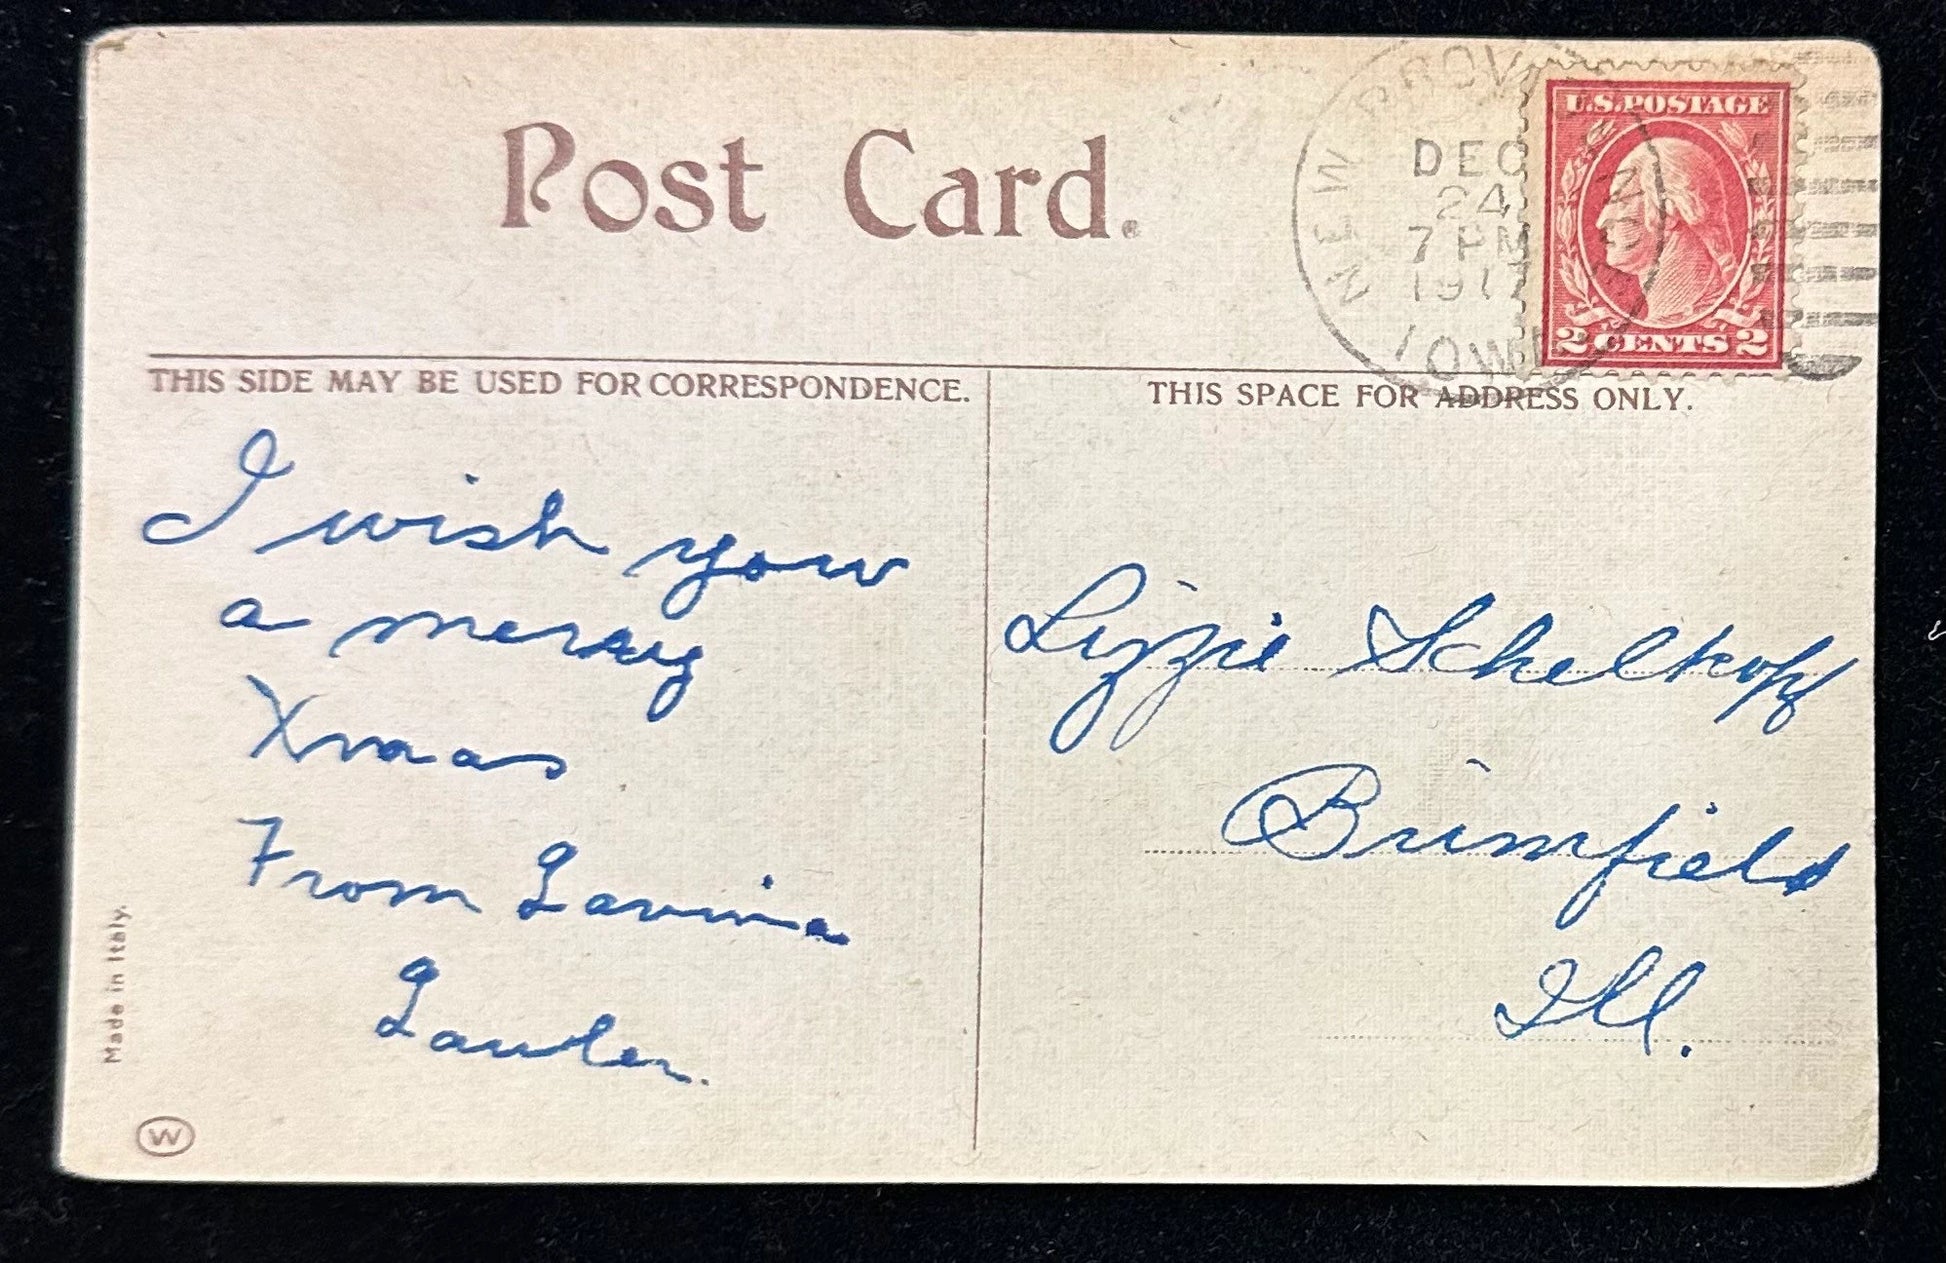 Post Card.
NEW PROVIDENCE
DEC
24
7 PM
1917
IOWA
U.S. POSTAGE
2 CENTS 2
THIS SIDE MAY BE USED FOR CORRESPONDENCE.
THIS SPACE FOR ADDRESS ONLY.
I wish you
a merry
Xmas
From Lavina
Lauler.
Lizzie Schelkopf
Brimfield
Ill.
Made in Italy.
W